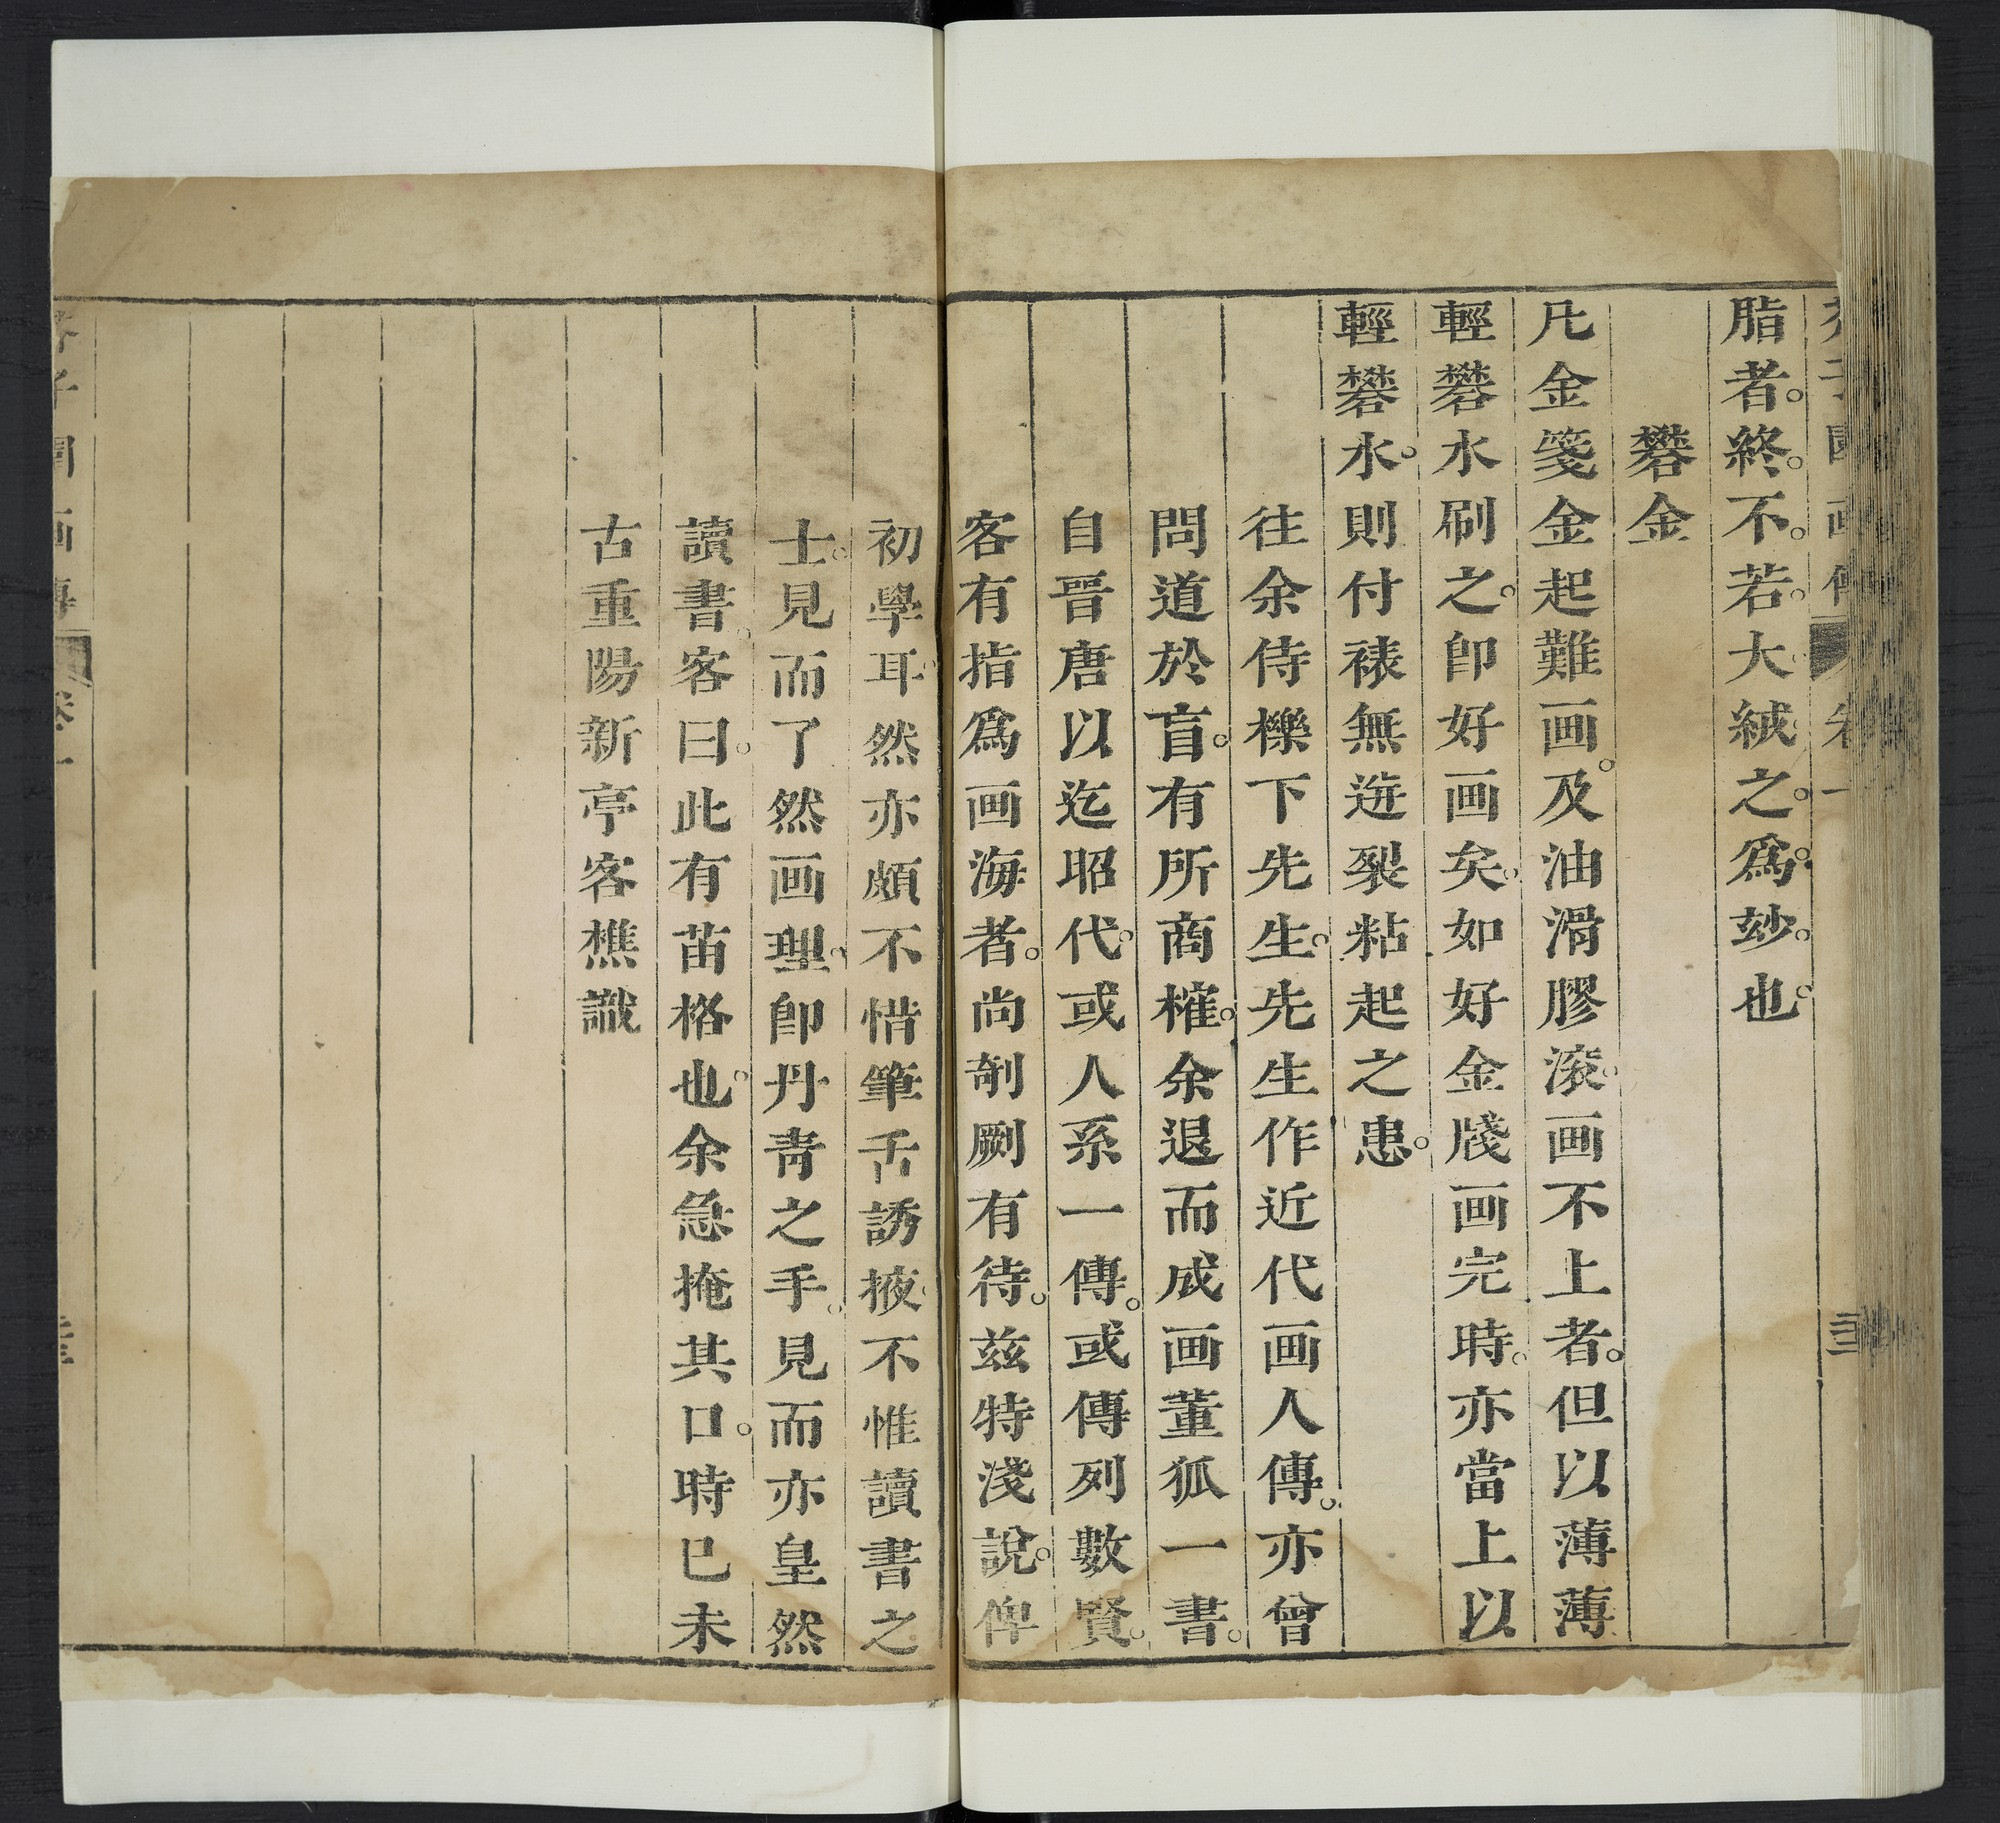 脂者。終。不。若。大絨。之。爲。玅。也。
礬金
凡金箋金金起難画。及油滑膠滚。画不上者。但以薄薄
輕礬水刷之。卽好画矣。如好金牋画完時。亦當上以
輕礬水。則付裱無迸裂粘起之患。
徃余侍櫟下先生。先生作近代画人傳。亦曾
問道於盲。有所商榷。余退而成画董狐一書。
自晉唐以迄昭代。或人系一傳。或傳列數賢。
客有指爲画海者。尚剞劂有待。兹特淺說。俾
初學耳。然亦頗不惜筆舌誘掖。不惟讀書之
士。見而了然画理。卽丹靑之手。見而亦皇然
讀書。客曰。此有苗格也。余急掩其口。時巳未
古重陽新亭客樵識
芥子園画傳 卷一